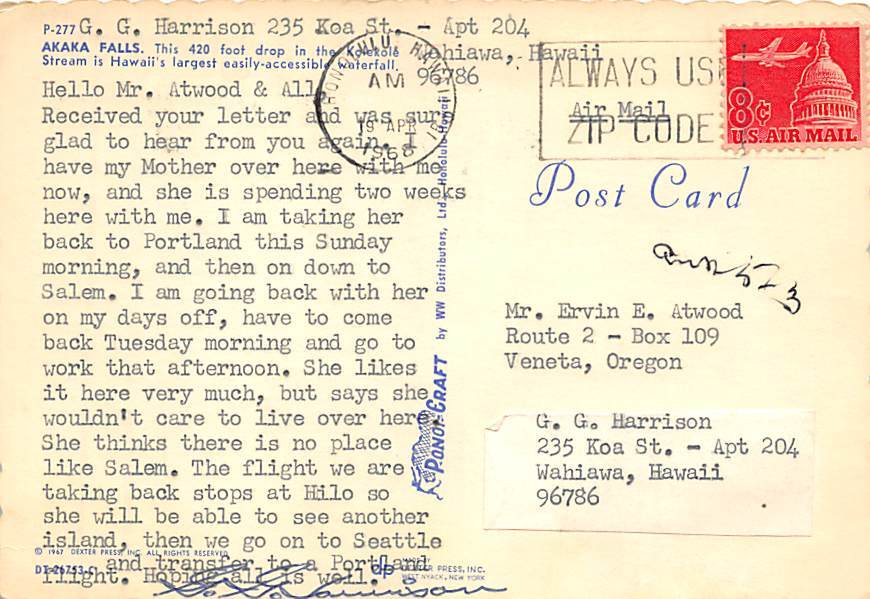 P-277 G. G. Harrison 235 Koa St. - Apt 204
Wahiawa, Hawaii
96786
AKAKA FALLS. This 420 foot drop in the Kolekole
Stream is Hawaii's largest easily-accessible waterfall.
Hello Mr. Atwood & All,
Received your letter and was sure
glad to hear from you again. I
have my Mother over here with me
now, and she is spending two weeks
here with me. I am taking her
back to Portland this Sunday
morning, and then on down to
Salem. I am going back with her
on my days off, have to come
back Tuesday morning and go to
work that afternoon. She likes
it here very much, but says she
wouldn't care to live over here.
She thinks there is no place
like Salem. The flight we are
taking back stops at Hilo so
she will be able to see another
island, then we go on to Seattle
and transfer to a Portland
flight. Hoping all is well.
G. G. Harrison
© 1967 DEXTER PRESS, INC. ALL RIGHTS RESERVED
DT-26753-C
dp DEXTER PRESS, INC.
WEST NYACK, NEW YORK
by WW Distributors, Ltd., Honolulu, Hawaii
HONOLULU, HAWAII
AM
19 APR
1968
ALWAYS USE
ZIP CODE
Air Mail
8¢
U.S. AIR MAIL
Post Card
523
Mr. Ervin E. Atwood
Route 2 - Box 109
Veneta, Oregon
G. G. Harrison
235 Koa St. - Apt 204
Wahiawa, Hawaii
96786